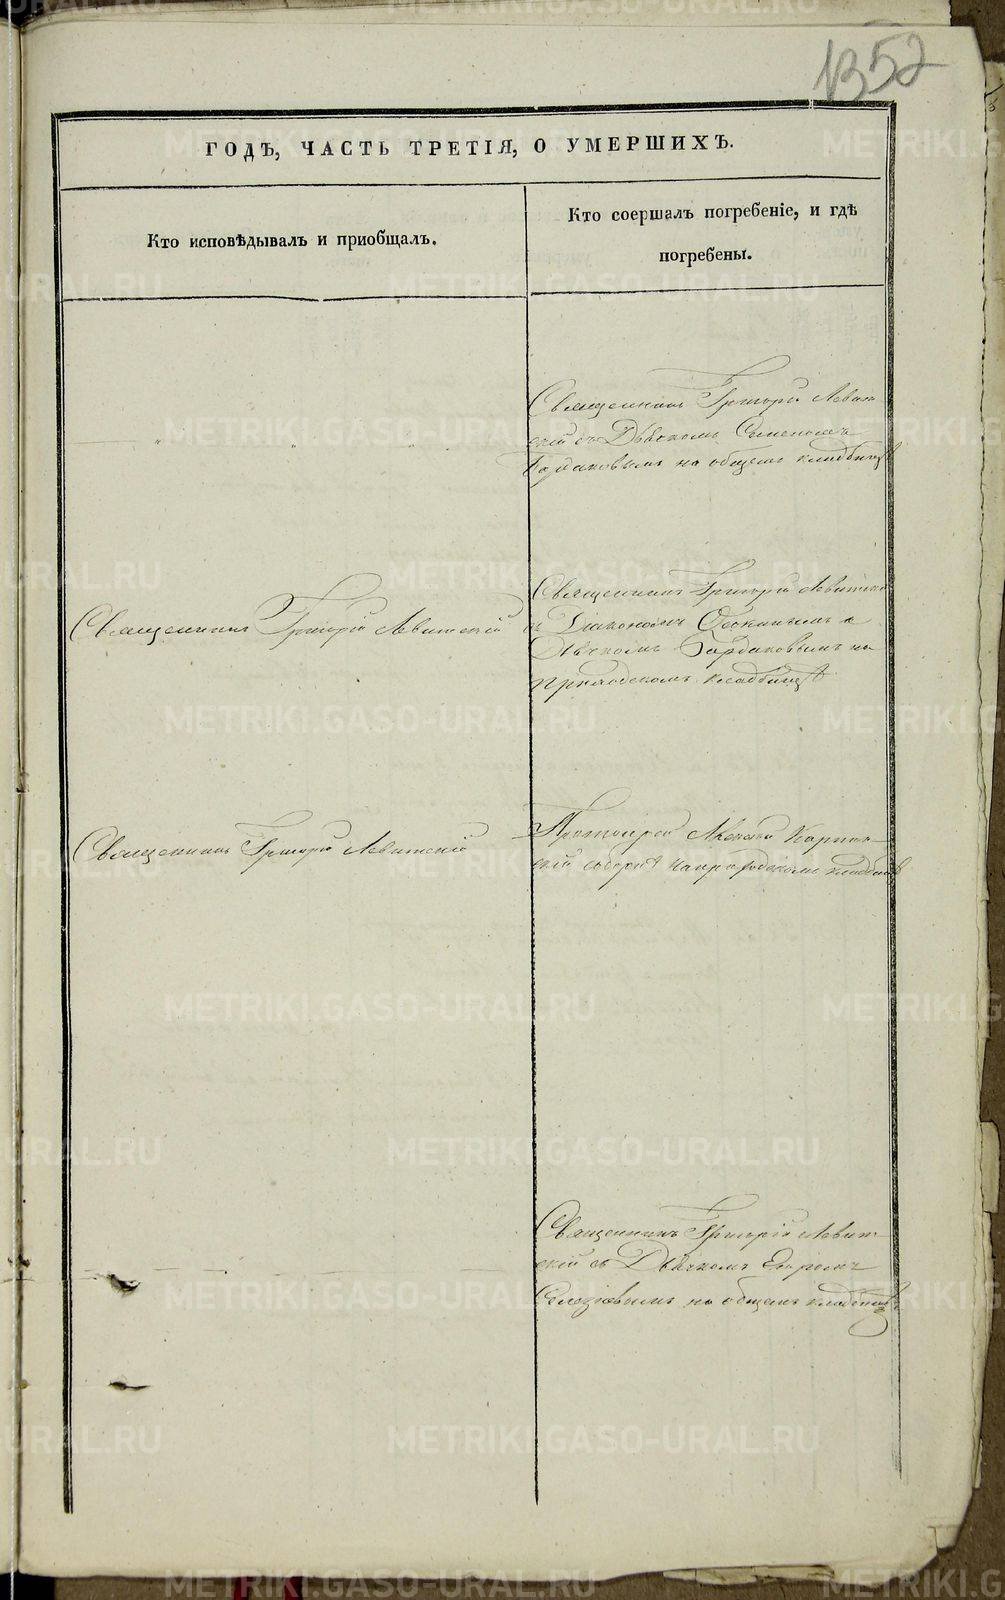 1352
ГОДЪ, ЧАСТЬ ТРЕТІЯ, О УМЕРШИХЪ.
Кто исповѣдывалъ и приобщалъ.
Кто соершалъ погребеніе, и гдѣ
погребены.
Священникъ Григорій Левит-
скій съ Дьячкомъ Семеномъ
на общемъ кладбищѣ
Священникъ Григорій Левитскій
Священникъ Григорій Левитскій
съ Діакономъ и
Дьячкомъ на
приходскомъ кладбищѣ
Священникъ Григорій Левитскій
Протоіерей Карпин-
скій соборне на городскомъ кладбищѣ
Священникъ Григорій Левит-
скій съ Дьячкомъ Егоромъ
на общемъ кладбищѣ
METRIKI.GASO-URAL.RU